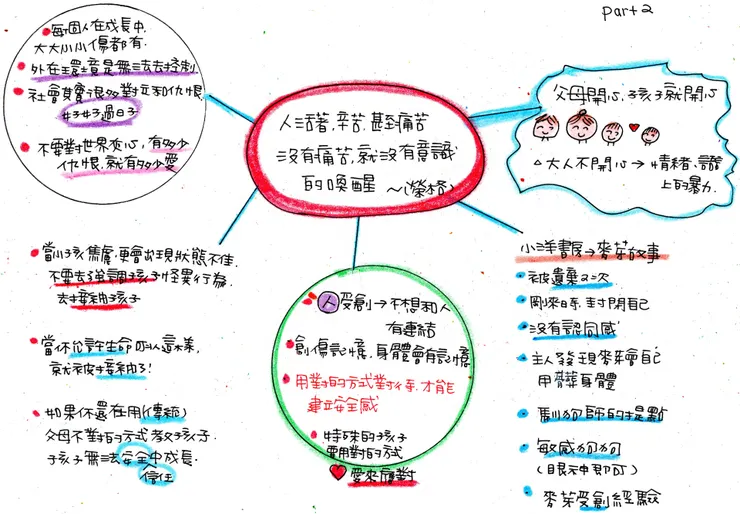 part 2
每個人在成長中,
大大小小傷都有.
外在環境是無法去控制
社會其實很多對立和仇恨
好好過日子
不要對世界灰心,有多少
仇恨.就有多少愛
人活著,辛苦,甚至痛苦
沒有痛苦,就沒有意識
的喚醒 ~(榮格)
父母開心,孩子就開心
△大人不開心→情緒、語言
上的暴力.
當小孩焦慮,更會出現狀態不佳.
不要去強調孩子怪異行為,
去接納孩子
當你允許生命可以這樣,
就被接納了!
如果你還在用(傳統)
父母不對的方式教孩子.
孩子無法去安全中成長.
信任
人受創→不想和人
有連結
創傷記憶,身體會有記憶
用對的方式對待,才能
建立安全感
特殊的孩子
要用對的方式
愛來應對
小洋書房→麥芽故事
被遺棄2次
剛來時封閉自己
沒有認同感
主人發現麥芽會自己
甲葬身體
馴狗師的提點
敏感狗狗
(眼神即可)
麥芽受創經驗